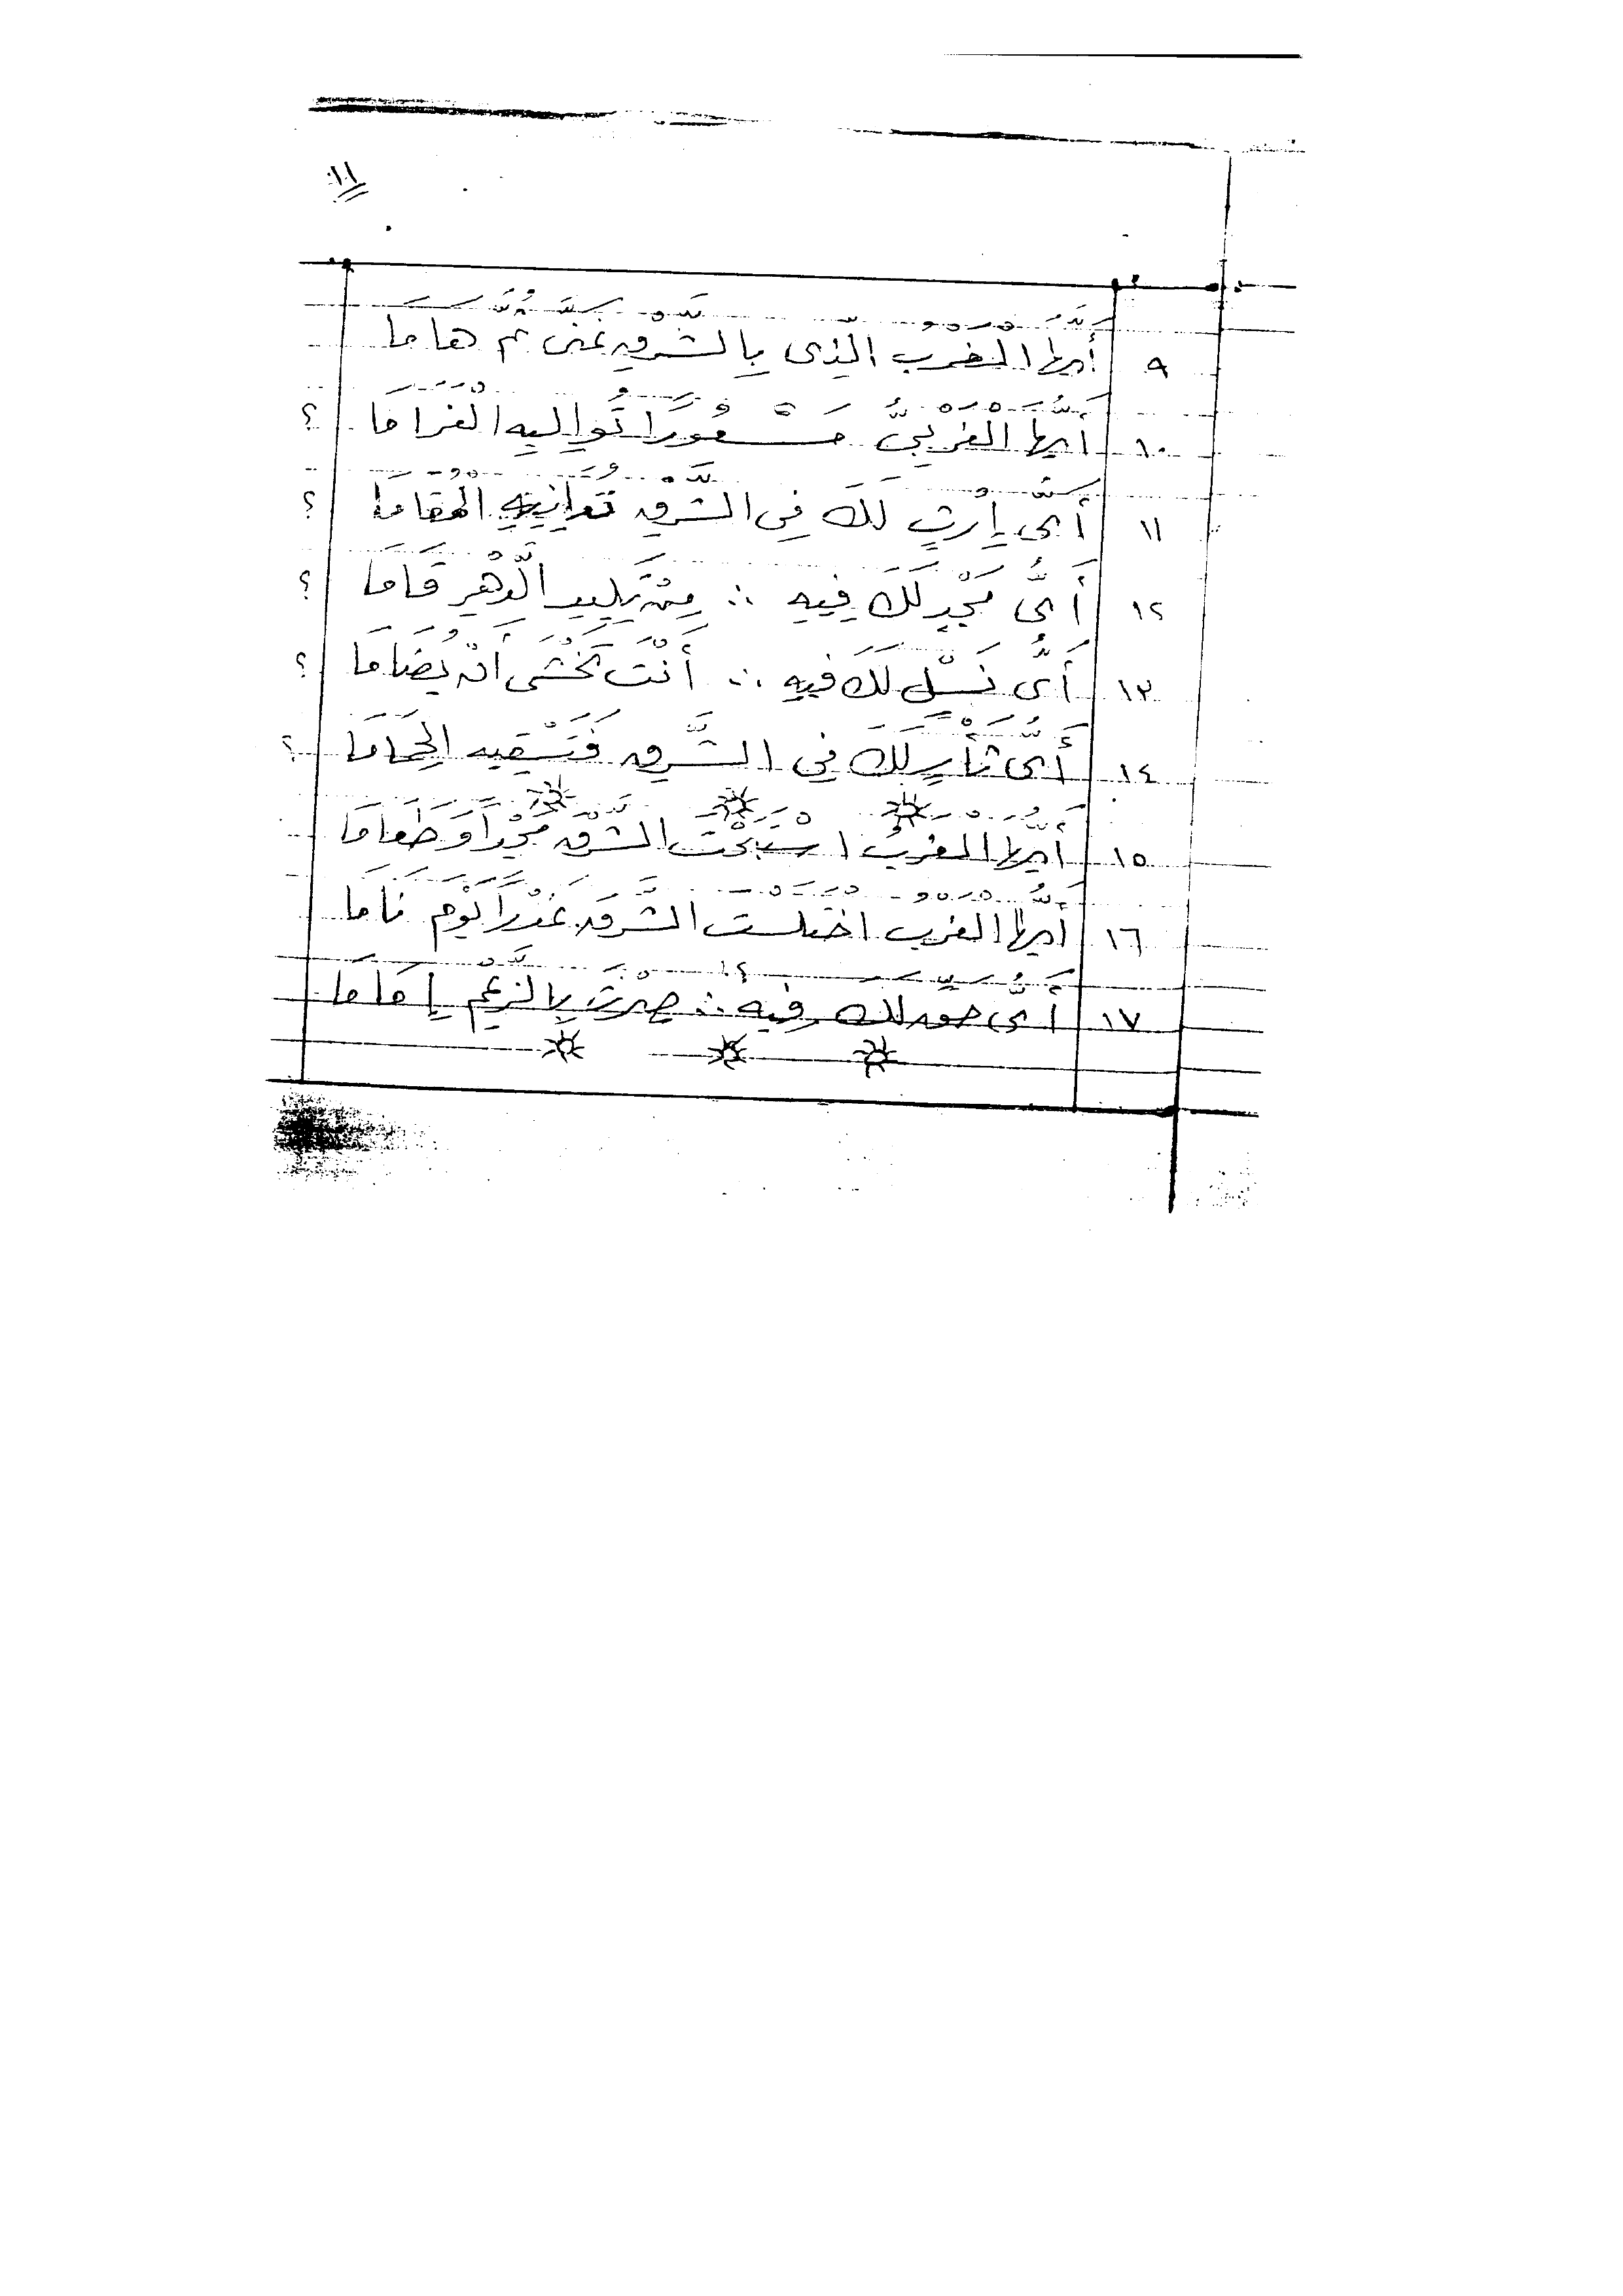 ١١
٩ أَيُّهَا الْغَرْبُ الَّذِى بِالشَّرْقِ غَنَّى ثُمَّ هَامَا
١٠ أَيُّهَا الْغَرْبِىُّ مَسْعُورًا تُوَالِيهِ الْغَرَامَا ؟
١١ أَىُّ إِرْثٍ لَكَ فِى الشَّرْقِ الْمُقَامَا ؟
١٢ أَىُّ مَجْدٍ لَكَ فِيهِ ∴ مِنْ تَلِيدِ الدَّهْرِ قَامَا ؟
١٣ أَىُّ نَسْلٍ لَكَ فِيهِ ∴ أَنْتَ تَخْشَى أَنْ يُضَامَا ؟
١٤ أَىُّ ثَأْرٍ لَكَ فِى الشَّرْقِ فَتَسْقِيهِ الْحِمَامَا ؟
١٥ أَيُّهَا الْغَرْبُ اسْتَبَحْتَ الشَّرْقَ مَجْدًا وَطَعَامَا
١٦ أَيُّهَا الْغَرْبُ اخْتَلَسْتَ الشَّرْقَ غَدْرًا يَوْمَ نَامَا
١٧ أَىُّ حَقٍّ لَكَ فِيهِ ؟ ∴ صِرْتَ بِالزَّعْمِ إِمَامَا